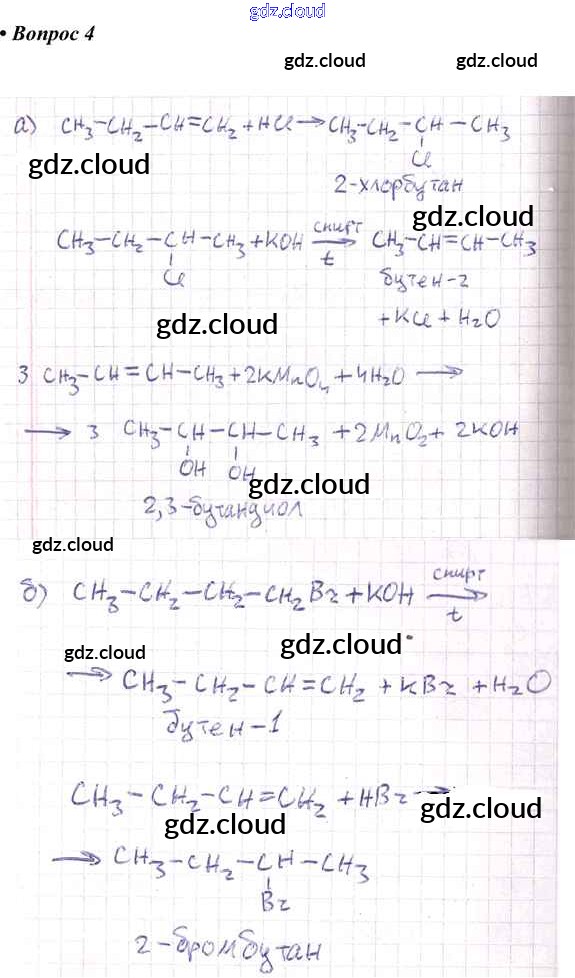 gdz.cloud
• Вопрос 4
gdz.cloud gdz.cloud
а) CH₃–CH₂–CH=CH₂ + HCl → CH₃–CH₂–CH–CH₃
Cl
gdz.cloud
2-хлорбутан
gdz.cloud
CH₃–CH₂–CH–CH₃ + KOH спирт → t CH₃–CH=CH–CH₃
Cl
бутен-2
gdz.cloud
+ KCl + H₂O
3 CH₃–CH=CH–CH₃ + 2KMnO₄ + 4H₂O →
→ 3 CH₃–CH–CH–CH₃ + 2MnO₂ + 2KOH
OH OH
gdz.cloud
2,3-бутандиол
gdz.cloud
б) CH₃–CH₂–CH₂–CH₂Br + KOH спирт → t
gdz.cloud gdz.cloud
→ CH₃–CH₂–CH=CH₂ + KBr + H₂O
бутен-1
CH₃–CH₂–CH=CH₂ + HBr →
gdz.cloud gdz.cloud
→ CH₃–CH₂–CH–CH₃
Br
2-бромбутан